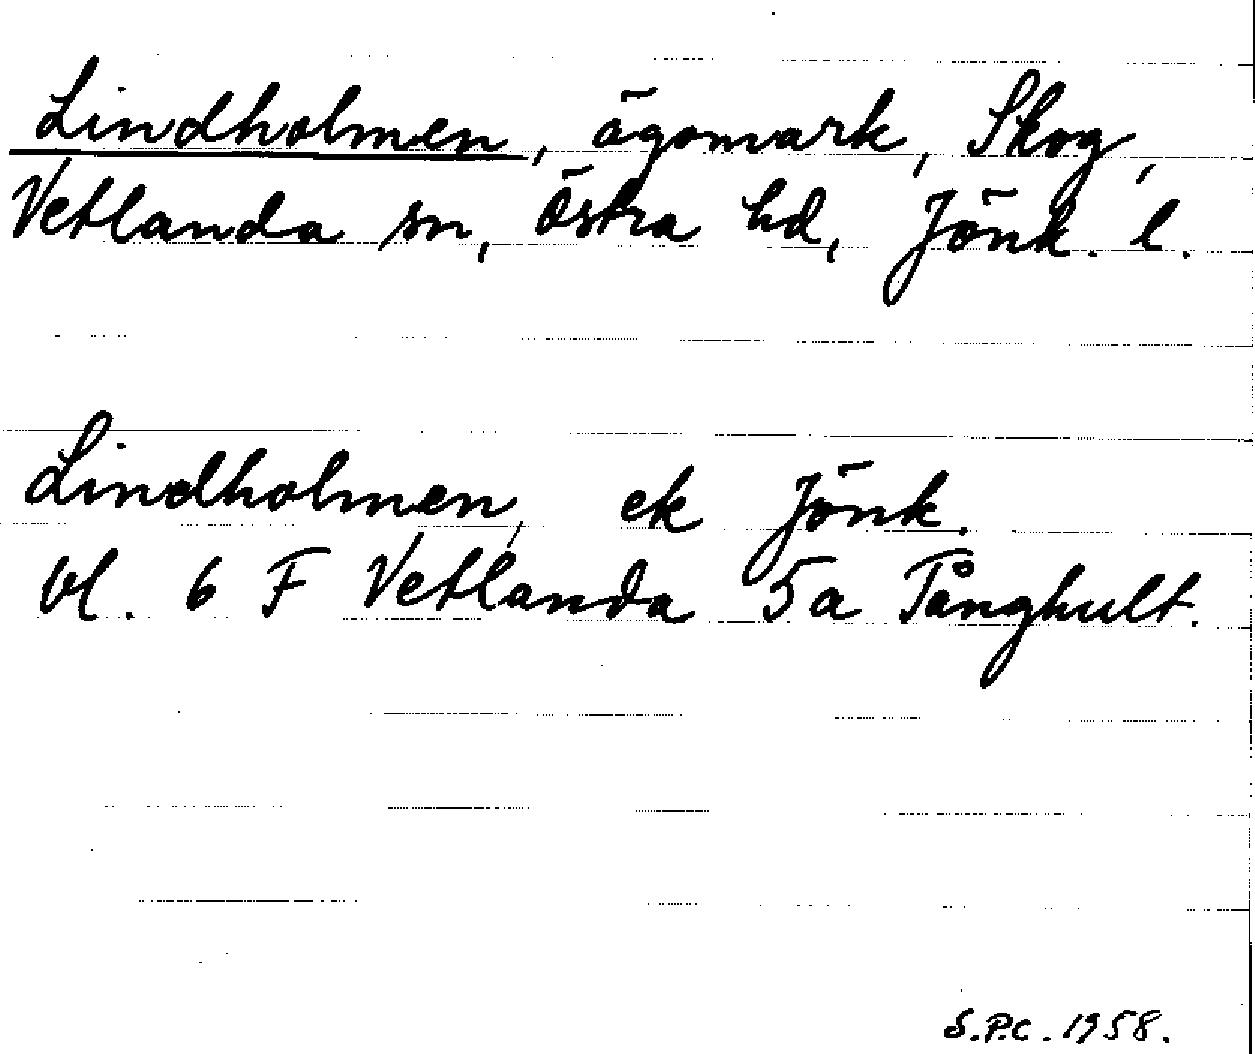 Lindholmen, ägomark, Skog,
Vetlanda sn, Östra hd, Jönk. l.
Lindholmen, ek Jönk.
bl. 6 F Vetlanda 5a Tånghult.
S.P.C. 1958.